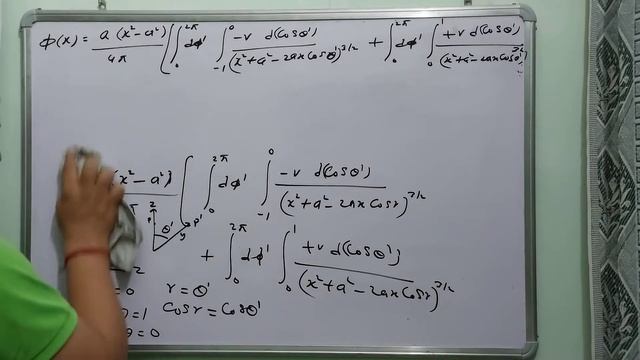 Φ(x) = a (x² − a²) / 4π ( ∫₀^2π dΦ' ∫₋₁^0 −v d(cosθ') / (x² + a² − 2ax cosθ')^3/2 + ∫₀^2π dΦ' ∫₀^1 +v d(cosθ') / (x² + a² − 2ax cosθ')^3/2
(x² − a²) ( ∫₀^2π dΦ' ∫₋₁^0 −v d(cosθ') / (x² + a² − 2ax cosγ)^3/2
+ ∫₀^2π dΦ' ∫₀^1 +v d(cosθ') / (x² + a² − 2ax cosγ)^3/2
z
P' θ' y
2
= 0 γ = θ'
= 1 cosγ = cosθ'
= 0